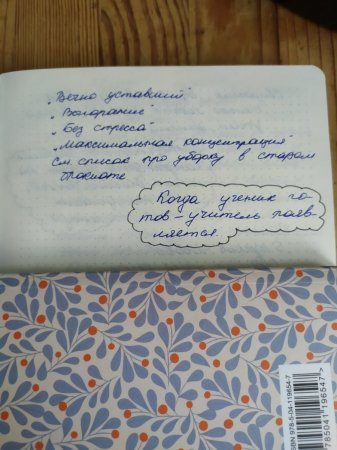 „Вечно уставший"
„Выгорание"
„Без стресса"
„Максимальная концентрация"
см. список про уборку в старом
блокноте
Когда ученик го-
тов – учитель появ-
ляется.
ISBN 978-5-04-119654-7
9785041196547 >